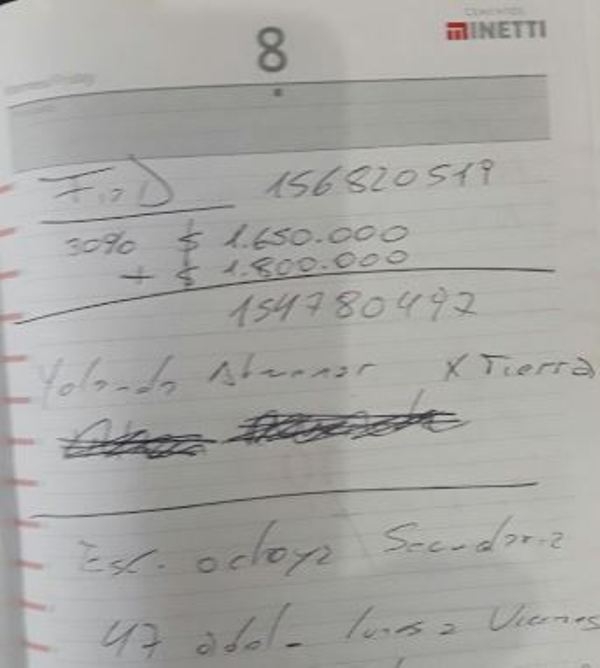 CEMENTOS
MINETTI
8
F.. D 156820519
30% $ 1.650.000
+ $ 1.800.000
154780497
Yolanda x Tierra
Esc. octoyz Secundaria
47 adol- lunes a Viernes